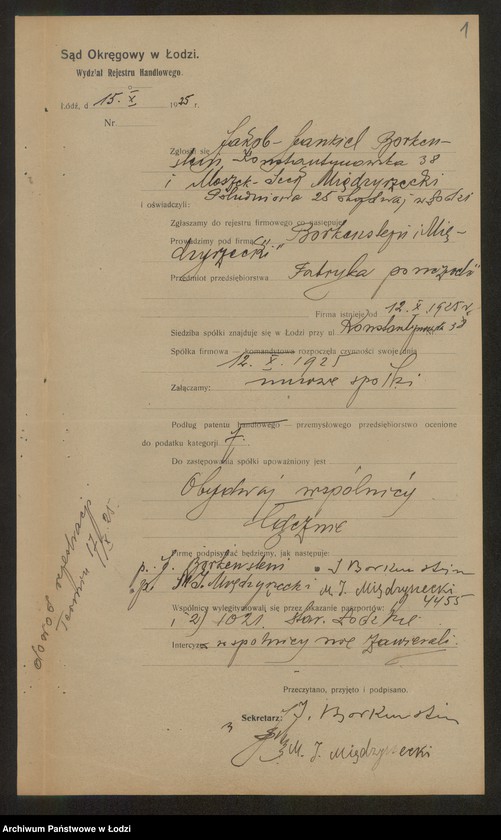 1
Sąd Okręgowy w Łodzi.
Wydział Rejestru Handlowego.
Łódź, d 15. X 1925 r.
Nr
Zgłosił się Jakób-Jankiel Borken-
stein, Konstantynowska 38
i Moszek-Icek Międzyrzecki
Południowa 25 obydwaj w Łodzi
i oświadczyli:
Zgłaszamy do rejestru firmowego co następuje:
Prowadzimy pod firmą „Borkenstein i Mię-
dzyrzecki”
Przedmiot przedsiębiorstwa Fabryka
Firma istnieje od 12. X. 1925 r.
Siedziba spółki znajduje się w Łodzi przy ul Konstantynowska 38
Spółka firmowa — komandytowa rozpoczęła czynności swoje dnia
12. X. 1925
Załączamy: umowę spółki
Podług patentu handlowego — przemysłowego przedsiębiorstwo ocenione
do podatku kategorji
Do zastępowania spółki upoważniony jest
Obydwaj wspólnicy
łącznie
Firmę podpisywać będziemy, jak następuje:
p. J. Borkenstein J Borkenstein
p. M. J. Międzyrzecki M. J. Międzyrzecki
Wspólnicy wylegitymowali się przez okazanie paszportów: 4455
i 2) 1021 Star. Łódzkie
Intercyz wspólnicy nie zawierali.
Przeczytano, przyjęto i podpisano.
Sekretarz: J. Borkenstein
M. J. Międzyrzecki
dowód rejestracji
Termin 17/X 25.
Archiwum Państwowe w Łodzi